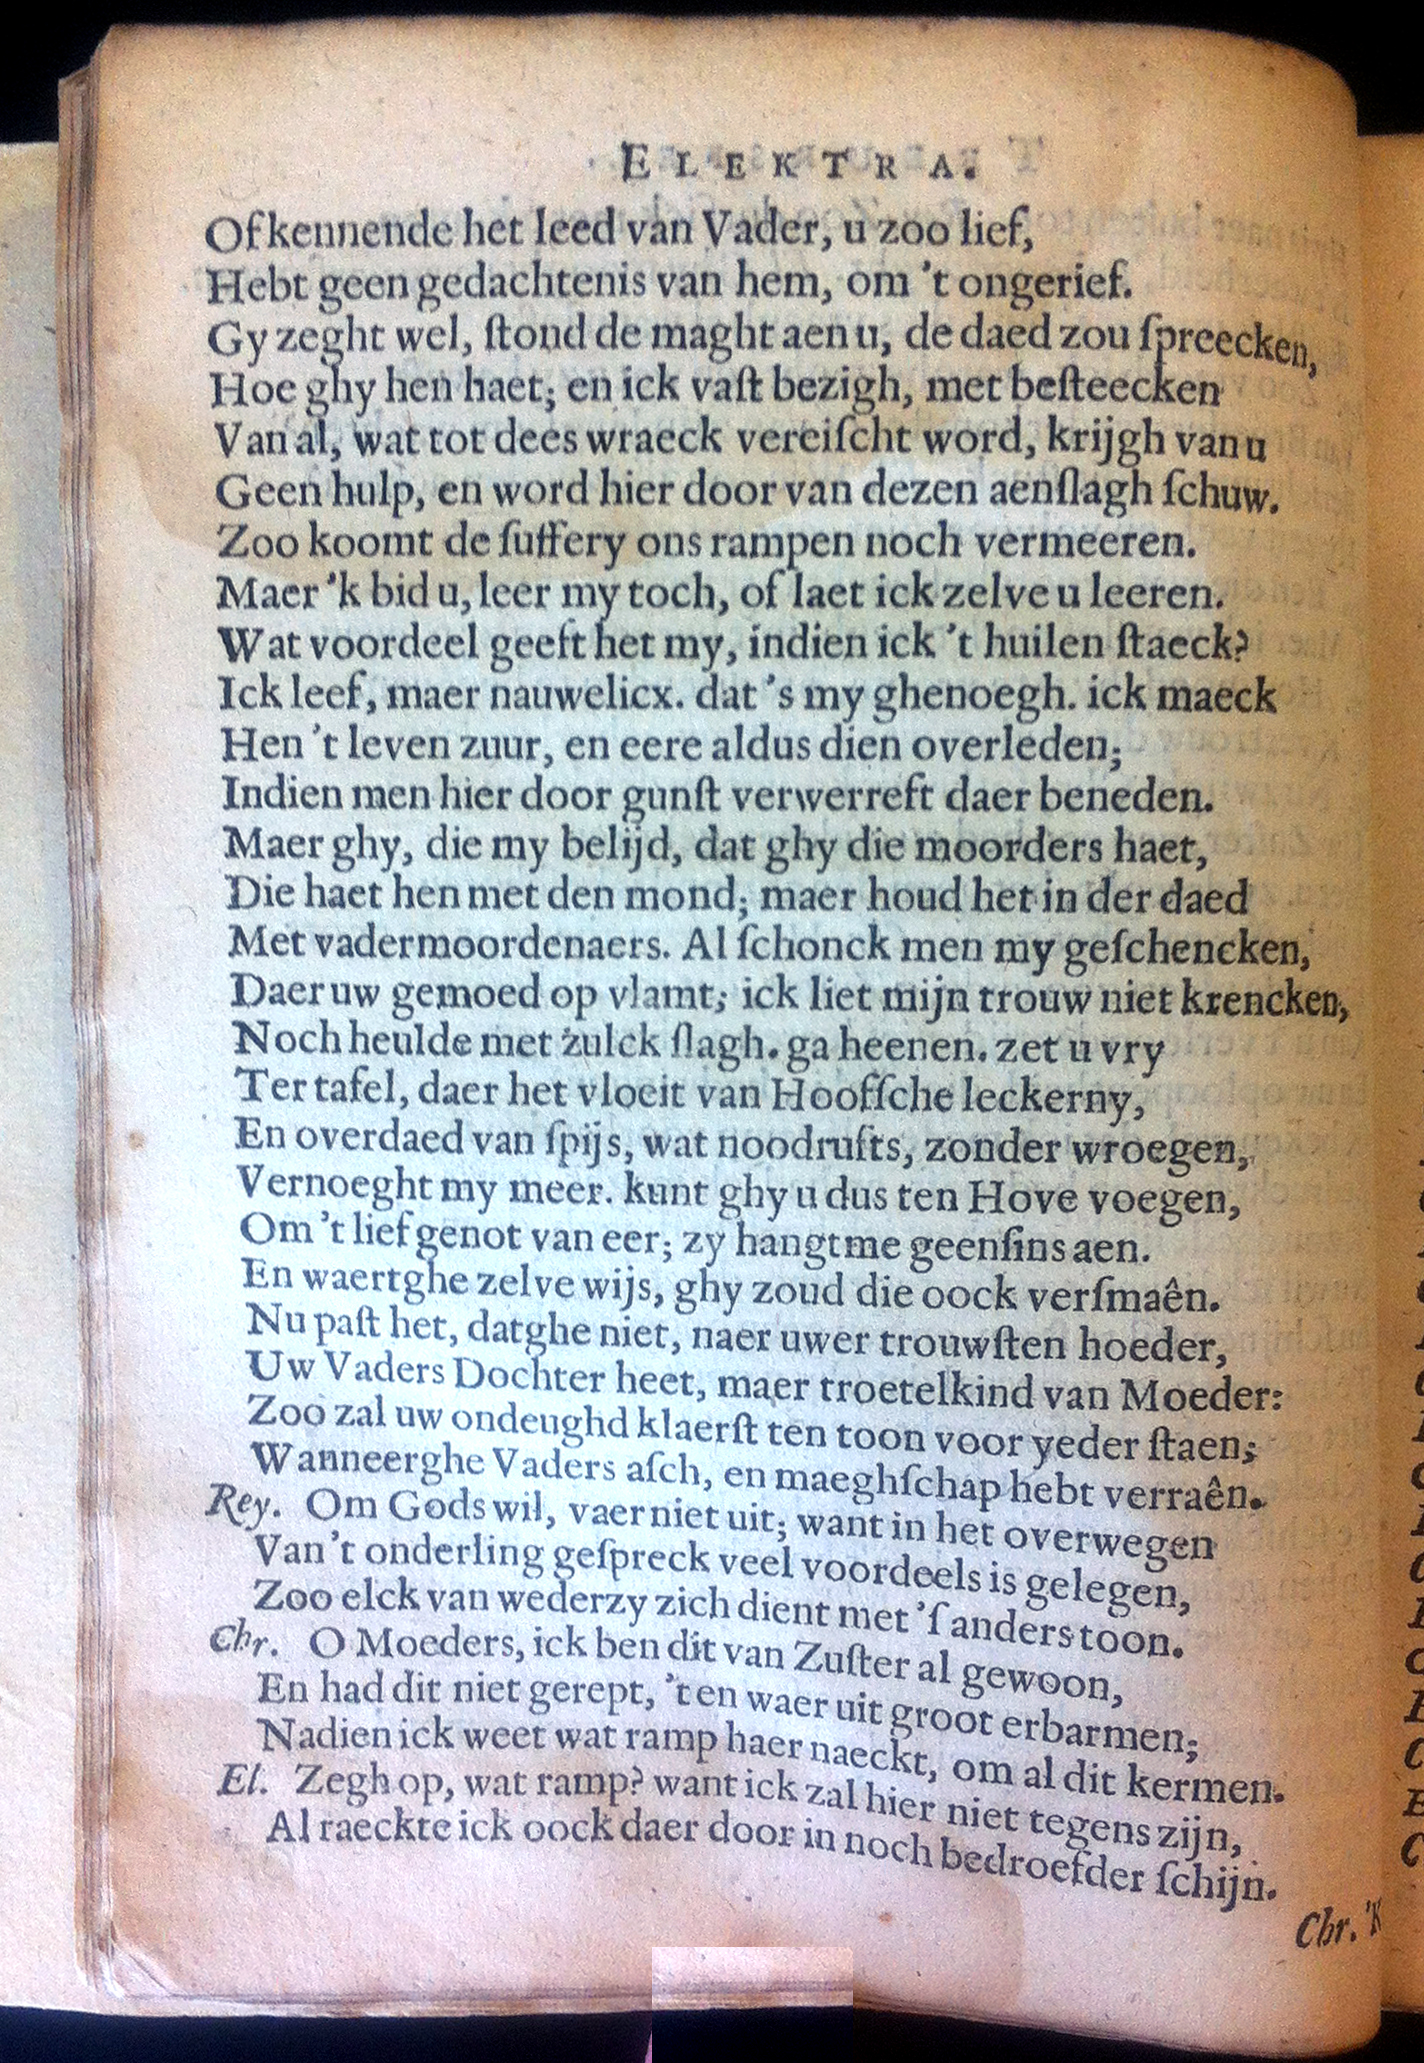 ELEKTRA.
Of kennende het leed van Vader, u zoo lief,
Hebt geen gedachtenis van hem, om 't ongerief.
Gy zeght wel, ſtond de maght aen u, de daed zou ſpreecken,
Hoe ghy hen haet; en ick vaſt bezigh, met beſteecken
Van al, wat tot dees wraeck vereiſcht word, krijgh van u
Geen hulp, en word hier door van dezen aenſlagh ſchuw.
Zoo koomt de ſuffery ons rampen noch vermeeren.
Maer 'k bid u, leer my toch, of laet ick zelve u leeren.
Wat voordeel geeft het my, indien ick 't huilen ſtaeck?
Ick leef, maer nauwelicx. dat 's my ghenoegh. ick maeck
Hen 't leven zuur, en eere aldus dien overleden;
Indien men hier door gunſt verwerreft daer beneden.
Maer ghy, die my belijd, dat ghy die moorders haet,
Die haet hen met den mond; maer houd het in der daed
Met vadermoordenaers. Al ſchonck men my geſchencken,
Daer uw gemoed op vlamt; ick liet mijn trouw niet krencken,
Noch heulde met zulck ſlagh. ga heenen. zet u vry
Ter tafel, daer het vloeit van Hoofſche leckerny,
En overdaed van ſpijs, wat noodrufts, zonder wroegen,
Vernoeght my meer. kunt ghy u dus ten Hove voegen,
Om 't lief genot van eer; zy hangt me geenſins aen.
En waertghe zelve wijs, ghy zoud die oock verſmaên.
Nu paſt het, datghe niet, naer uwer trouwſten hoeder,
Uw Vaders Dochter heet, maer troetelkind van Moeder:
Zoo zal uw ondeughd klaerſt ten toon voor yeder ſtaen;
Wanneerghe Vaders aſch, en maeghſchap hebt verraên.
Rey. Om Gods wil, vaer niet uit; want in het overwegen
Van 't onderling geſpreck veel voordeels is gelegen,
Zoo elck van wederzy zich dient met 'ſ anders toon.
Chr. O Moeders, ick ben dit van Zuſter al gewoon,
En had dit niet gerept, 't en waer uit groot erbarmen;
Nadien ick weet wat ramp haer naeckt, om al dit kermen.
El. Zegh op, wat ramp? want ick zal hier niet tegens zijn,
Al raeckte ick oock daer door in noch bedroefder ſchijn.
Chr. 'K